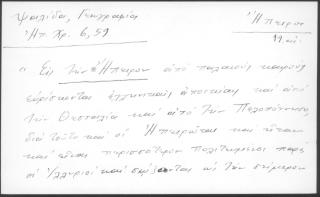 Ψαλίδα, Γεωγραφία
Ἤπειρος
Ἠπ. Χρ. 6, 59
19 αἰ.
" Εἰς τὴν Ἤπειρον ἀπὸ παλαιοὺς καιροὺς
εὑρίσκονται ἑλληνικαὶ ἀποικίαι καὶ ἀπὸ
τὴν Θεσσαλία καὶ ἀπὸ τὴν Πελοπόννησο,
διὰ τοῦτο καὶ οἱ Ἠπειρῶται καὶ ἦταν
καὶ εἶναι περισσότερον πολιτισμένοι παρὰ
οἱ Ἰλλυριοὶ καὶ εἰς τὴν σήμερον